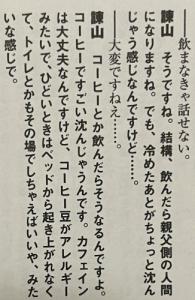 ――飲まなきゃ話せない。
諫山　そうですね。結構、飲んだら親父側の人間
になりますね。でも、冷めたあとがちょっと沈ん
じゃう感じなんですけど……。
――大変ですねえ……。
諫山　コーヒーとか飲んだらそうなるんですよ。
コーヒーですごい沈んじゃうんです。カフェイン
は大丈夫なんですけど、コーヒー豆がアレルギー
みたいで、ひどいときはベッドから起き上がれなく
て、トイレとかもその場でしちゃえばいいや、みた
いな感じで。